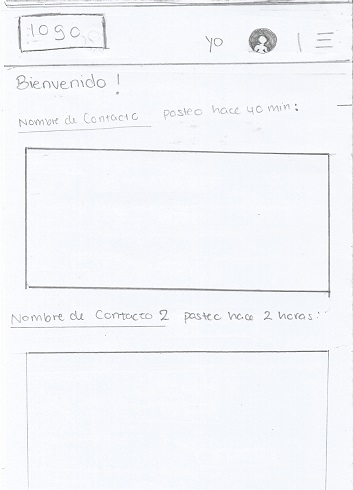 logo
yo
Bienvenido !
Nombre de Contacto posteo hace 40 min:
Nombre de Contacto 2 posteo hace 2 horas: